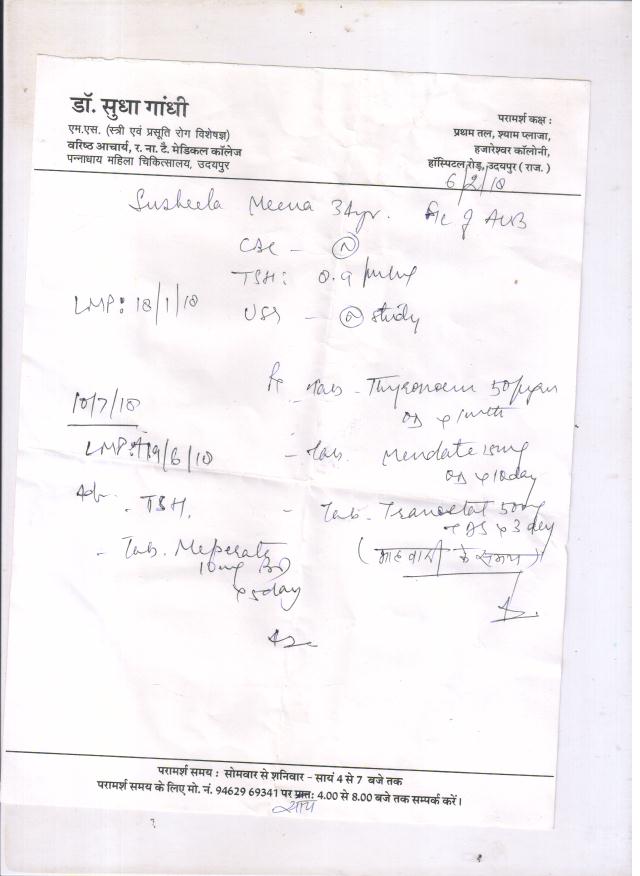 डॉ. सुधा गांधी
एम.एस. (स्त्री एवं प्रसूति रोग विशेषज्ञ)
वरिष्ठ आचार्य, र. ना. टै. मेडिकल कॉलेज
पन्नाधाय महिला चिकित्सालय, उदयपुर
परामर्श कक्ष :
प्रथम तल, श्याम प्लाजा,
हजारेश्वर कॉलोनी,
हॉस्पिटल रोड़, उदयपुर ( राज. )
6/2/18
Susheela Meena 34yr. of AUB
CBC - (N)
TSH: 0.9
LMP: 18/1/18
USS - (N) study
Rx Tab - 50
OD x 1 month
- Tab. 10mg
OD x 10day
- Tab. 50mg
x 3 day
( माहवारी के समय )
10/7/18
LMP: 19/6/18
Adv. - TSH.
- Tab. Meperate
10mg BD
x 5day
परामर्श समय : सोमवार से शनिवार - सायं 4 से 7 बजे तक
परामर्श समय के लिए मो. नं. 94629 69341 पर प्रातः 4.00 से 8.00 बजे तक सम्पर्क करें।
सायं